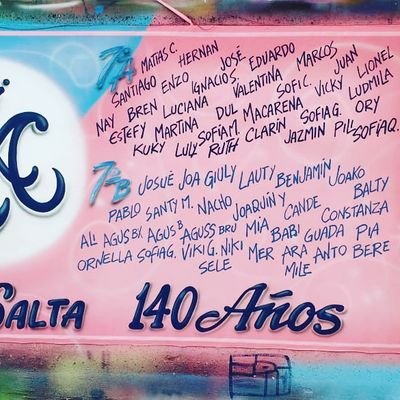 7ºA MATIAS C. HERNAN JOSÉ EDUARDO MARCOS JUAN LIONEL
SANTIAGO ENZO IGNACIOS. VALENTINA SOFI C. VICKY LUDMILA
NAY BREN LUCIANA DUL MACARENA SOFIA G. ORY
ESTEFY MARTINA SOFIA M. CLARIN JAZMIN PILI SOFIA Q.
KUKY LULY RUTH
7ºB JOSUÉ JOA GIULY LAUTY BENJAMÍN JOAKO
PABLO SANTY M. NACHO JOAQUÍN Y CANDE BALTY
ALI AGUS BX AGUS B AGUSS BRU MÍA BABI GUADA CONSTANZA
ORNELLA SOFIA G. VIKI G. NIKI MER ARA ANTO PIA BERE
SELE MILE
SALTA 140 AÑOS